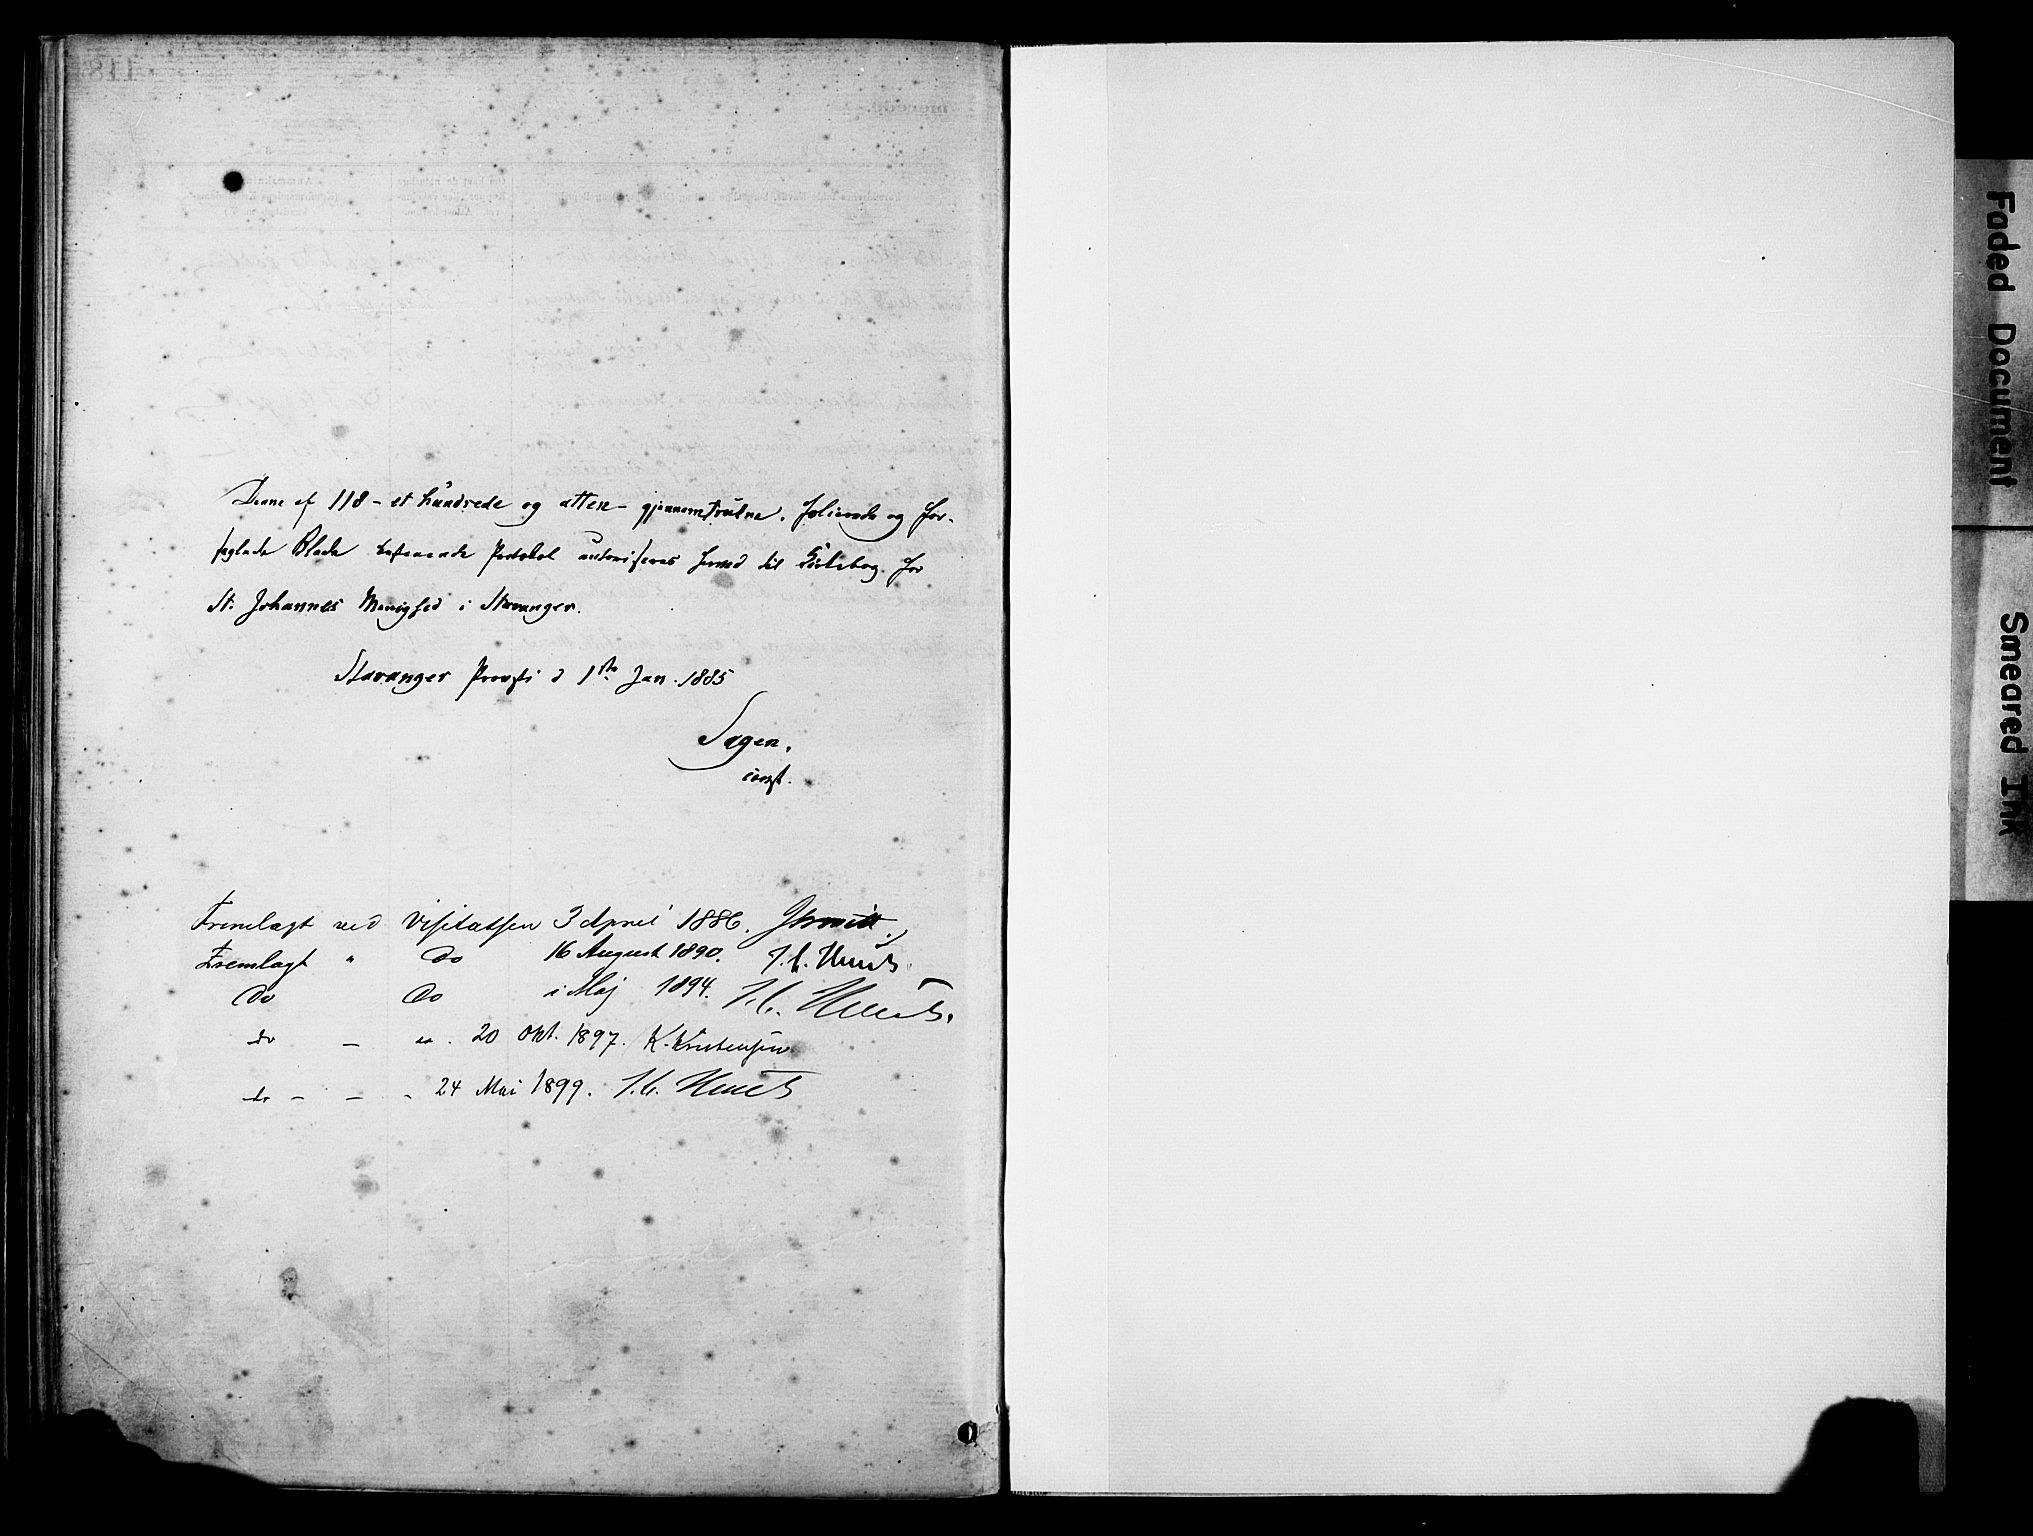 Denne af 118 - et hundrede og atten - gjennemtrukne, folierede og for-
seglede Blade bestaaende Protokol autoriseres herved til Kirkebog for
St. Johannes Menighed i Stavanger.
Stavanger Provsti d 1ste Jan. 1885
Sagen.
const.
Fremlagt ved Visitatsen 3 April 1886.
Fremlagt " Do 16 August 1890.
Do Do i Maj 1894.
do - do. 20 Okt. 1897. K. Kristensen
do - - - 24 Mai 1899.
Faded Document
Smeared Ink